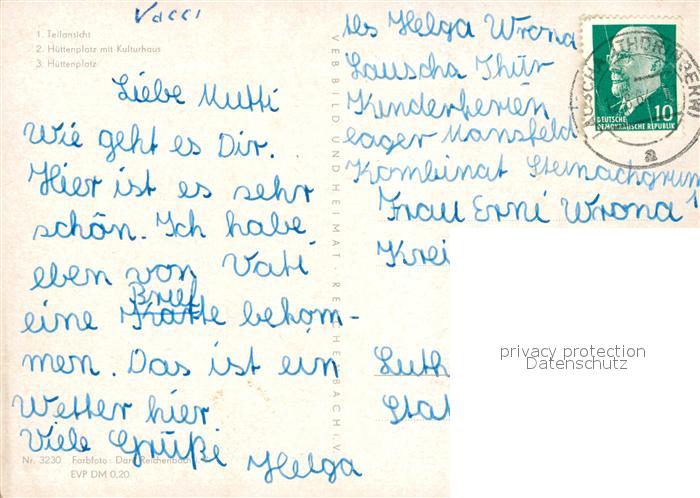 Vacci
1. Teilansicht
2. Hüttenplatz mit Kulturhaus
3. Hüttenplatz
Liebe Mutti
Wie geht es Dir.
Hier ist es sehr
schön. Ich habe
eben von Vati
Brief
eine Karte bekom-
men. Das ist ein
Wetter hier
Viele Grüße
Helga
Nr. 3230 Farbfoto: Darr Reichenbach
EVP DM 0,20
VEB BILD UND HEIMAT · REICHENBACH I. V.
Helga Wrona
Lauscha Thür
Kinderferien
lager Mansfeld
Kombinat Steinachgrun
Frau Erni Wrona
Krei
Luth
Stat
DEUTSCHE
DEMOKRATISCHE REPUBLIK
10
LAUSCHA (THÜR
a
privacy protection
Datenschutz